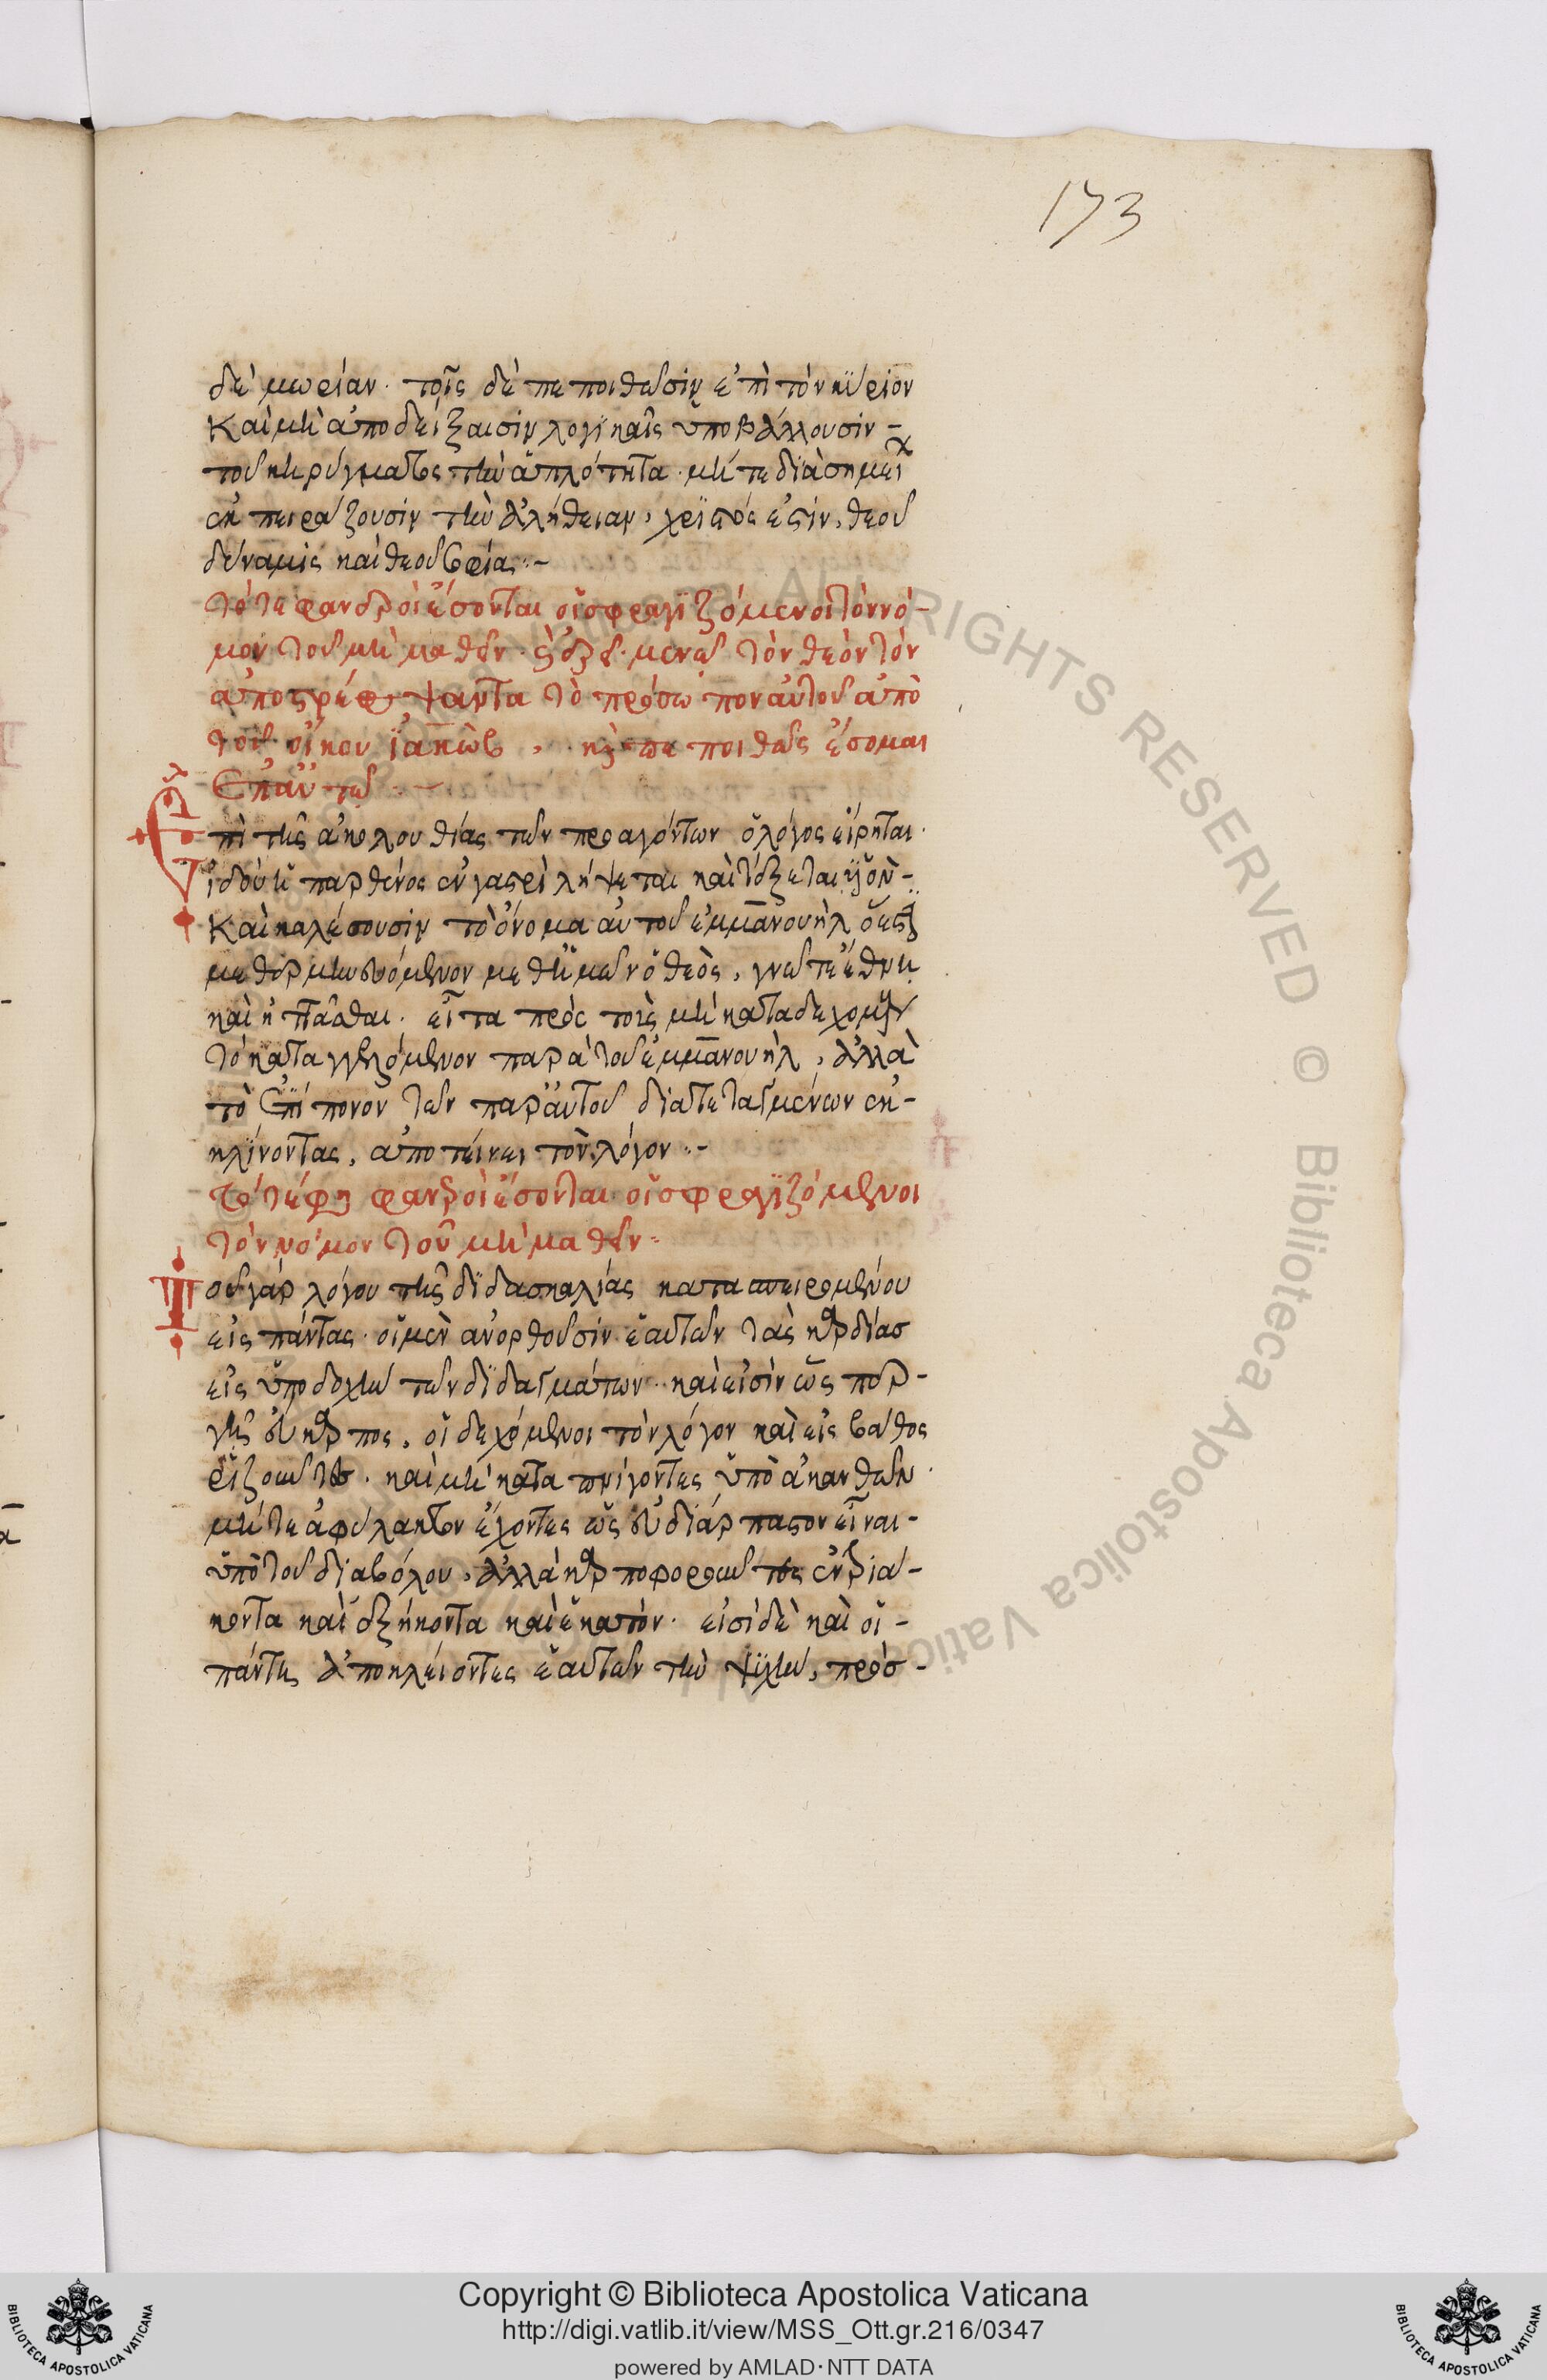 173
δὲ μωρίαν· τοῖς δὲ πεποιθῶσιν ἐπὶ τὸν κύριον
καὶ μὴ ἀποδείξαισιν λογϊκαῖς ὑποβάλλουσιν -
τοῦ κηρύγματος τὴν ἁπλότητα· μήτε διὰ σημεί
ἐκπειράζουσιν τὴν ἀλήθειαν, χριστός ἐστιν, θεοῦ
δύναμις καὶ θεοῦ σοφία :-
τότε φανεροὶ ἔσονται οἱ σφραγιζόμενοι τὸν νό-
μον τοῦ μὴ μαθεῖν· καὶ ἐρεῖ· μενῶ τὸν θεὸν τὸν
ἀποστρέψαντα τὸ πρόσωπον αὐτοῦ ἀπὸ
τοῦ οἴκου ἰακὼβ, καὶ πεποιθὼς ἔσομαι
ἐπ' αὐτῶ
Ἐπὶ τῆς ἀκολουθίας τῶν προαγόντων ὁ λόγος εἴρηται·
ἰδοὺ ἡ παρθένος ἐν γαστρὶ λήψεται καὶ τέξεται υἱὸν -
καὶ καλέσουσιν τὸ ὄνομα αὐτοῦ ἐμμανουὴλ ὅ ἐστι
μεθερμηνευόμενον μεθ' ἡμῶν ὁ θεὸς, γνῶτε ἔθνη
καὶ ἡττᾶσθαι· εἶτα πρὸς τοὺς μὴ καταδεχομένους
τὸ καταγγελόμενον παρὰ τοῦ ἐμμανουὴλ, ἀλλὰ
τὸ ἐπίπονον τῶν παρ' αὐτοῦ διατεταγμένων ἐκ-
κλίνοντας, ἀποτείνει τὸν λόγον :-
τότε φη φανεροὶ ἔσονται οἱ σφραγιζόμενοι
τὸν νόμον τοῦ μὴ μαθεῖν·
Τοῦ γὰρ λόγου τῆς διδασκαλίας κατασπειρομένου
εἰς πάντας· οἱ μὲν ἀνορθοῦσιν ἑαυτῶν τὰς καρδίασ
εἰς ὑποδοχὴν τῶν διδαγμάτων· καὶ εἰσὶν ὥσπερ -
γῆ εὔκαρπος, οἱ δεχόμενοι τὸν λόγον καὶ εἰς βάθος
ῥιζοῦντες· καὶ μὴ καταπνίγοντες ὑπὸ ἀκανθῶν·
μήτε ἀφύλακτον ἔχοντες ὡς εὐδιάρπαστον εἶναι -
ὑπὸ τοῦ διαβόλου, ἀλλὰ καρποφοροῦντες ἐν τριά-
κοντα καὶ ἑξήκοντα καὶ ἑκατόν· εἰσὶ δὲ καὶ οἱ -
πάντες ἀποκλείοντες ἑαυτῶν τὴν ψυχὴν, πρὸσ -
Copyright © Biblioteca Apostolica Vaticana
http://digi.vatlib.it/view/MSS_Ott.gr.216/0347
powered by AMLAD·NTT DATA